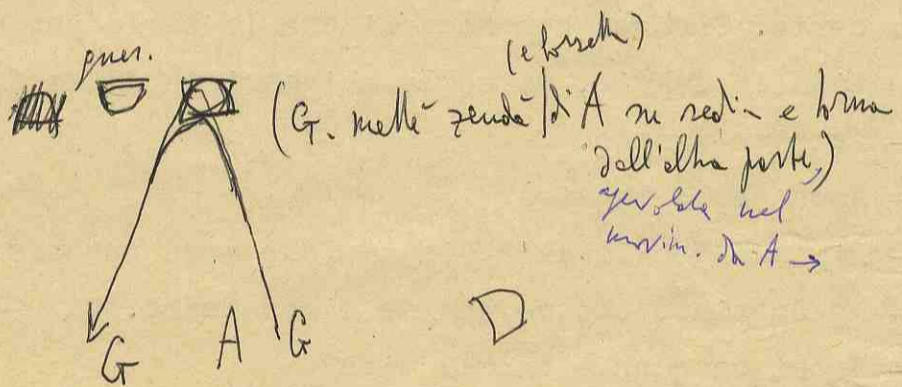 (e borsetta)
(G. mette zendà di A su sedia e torna
dall'altra parte,)
nel
movim. da A →
G A G D